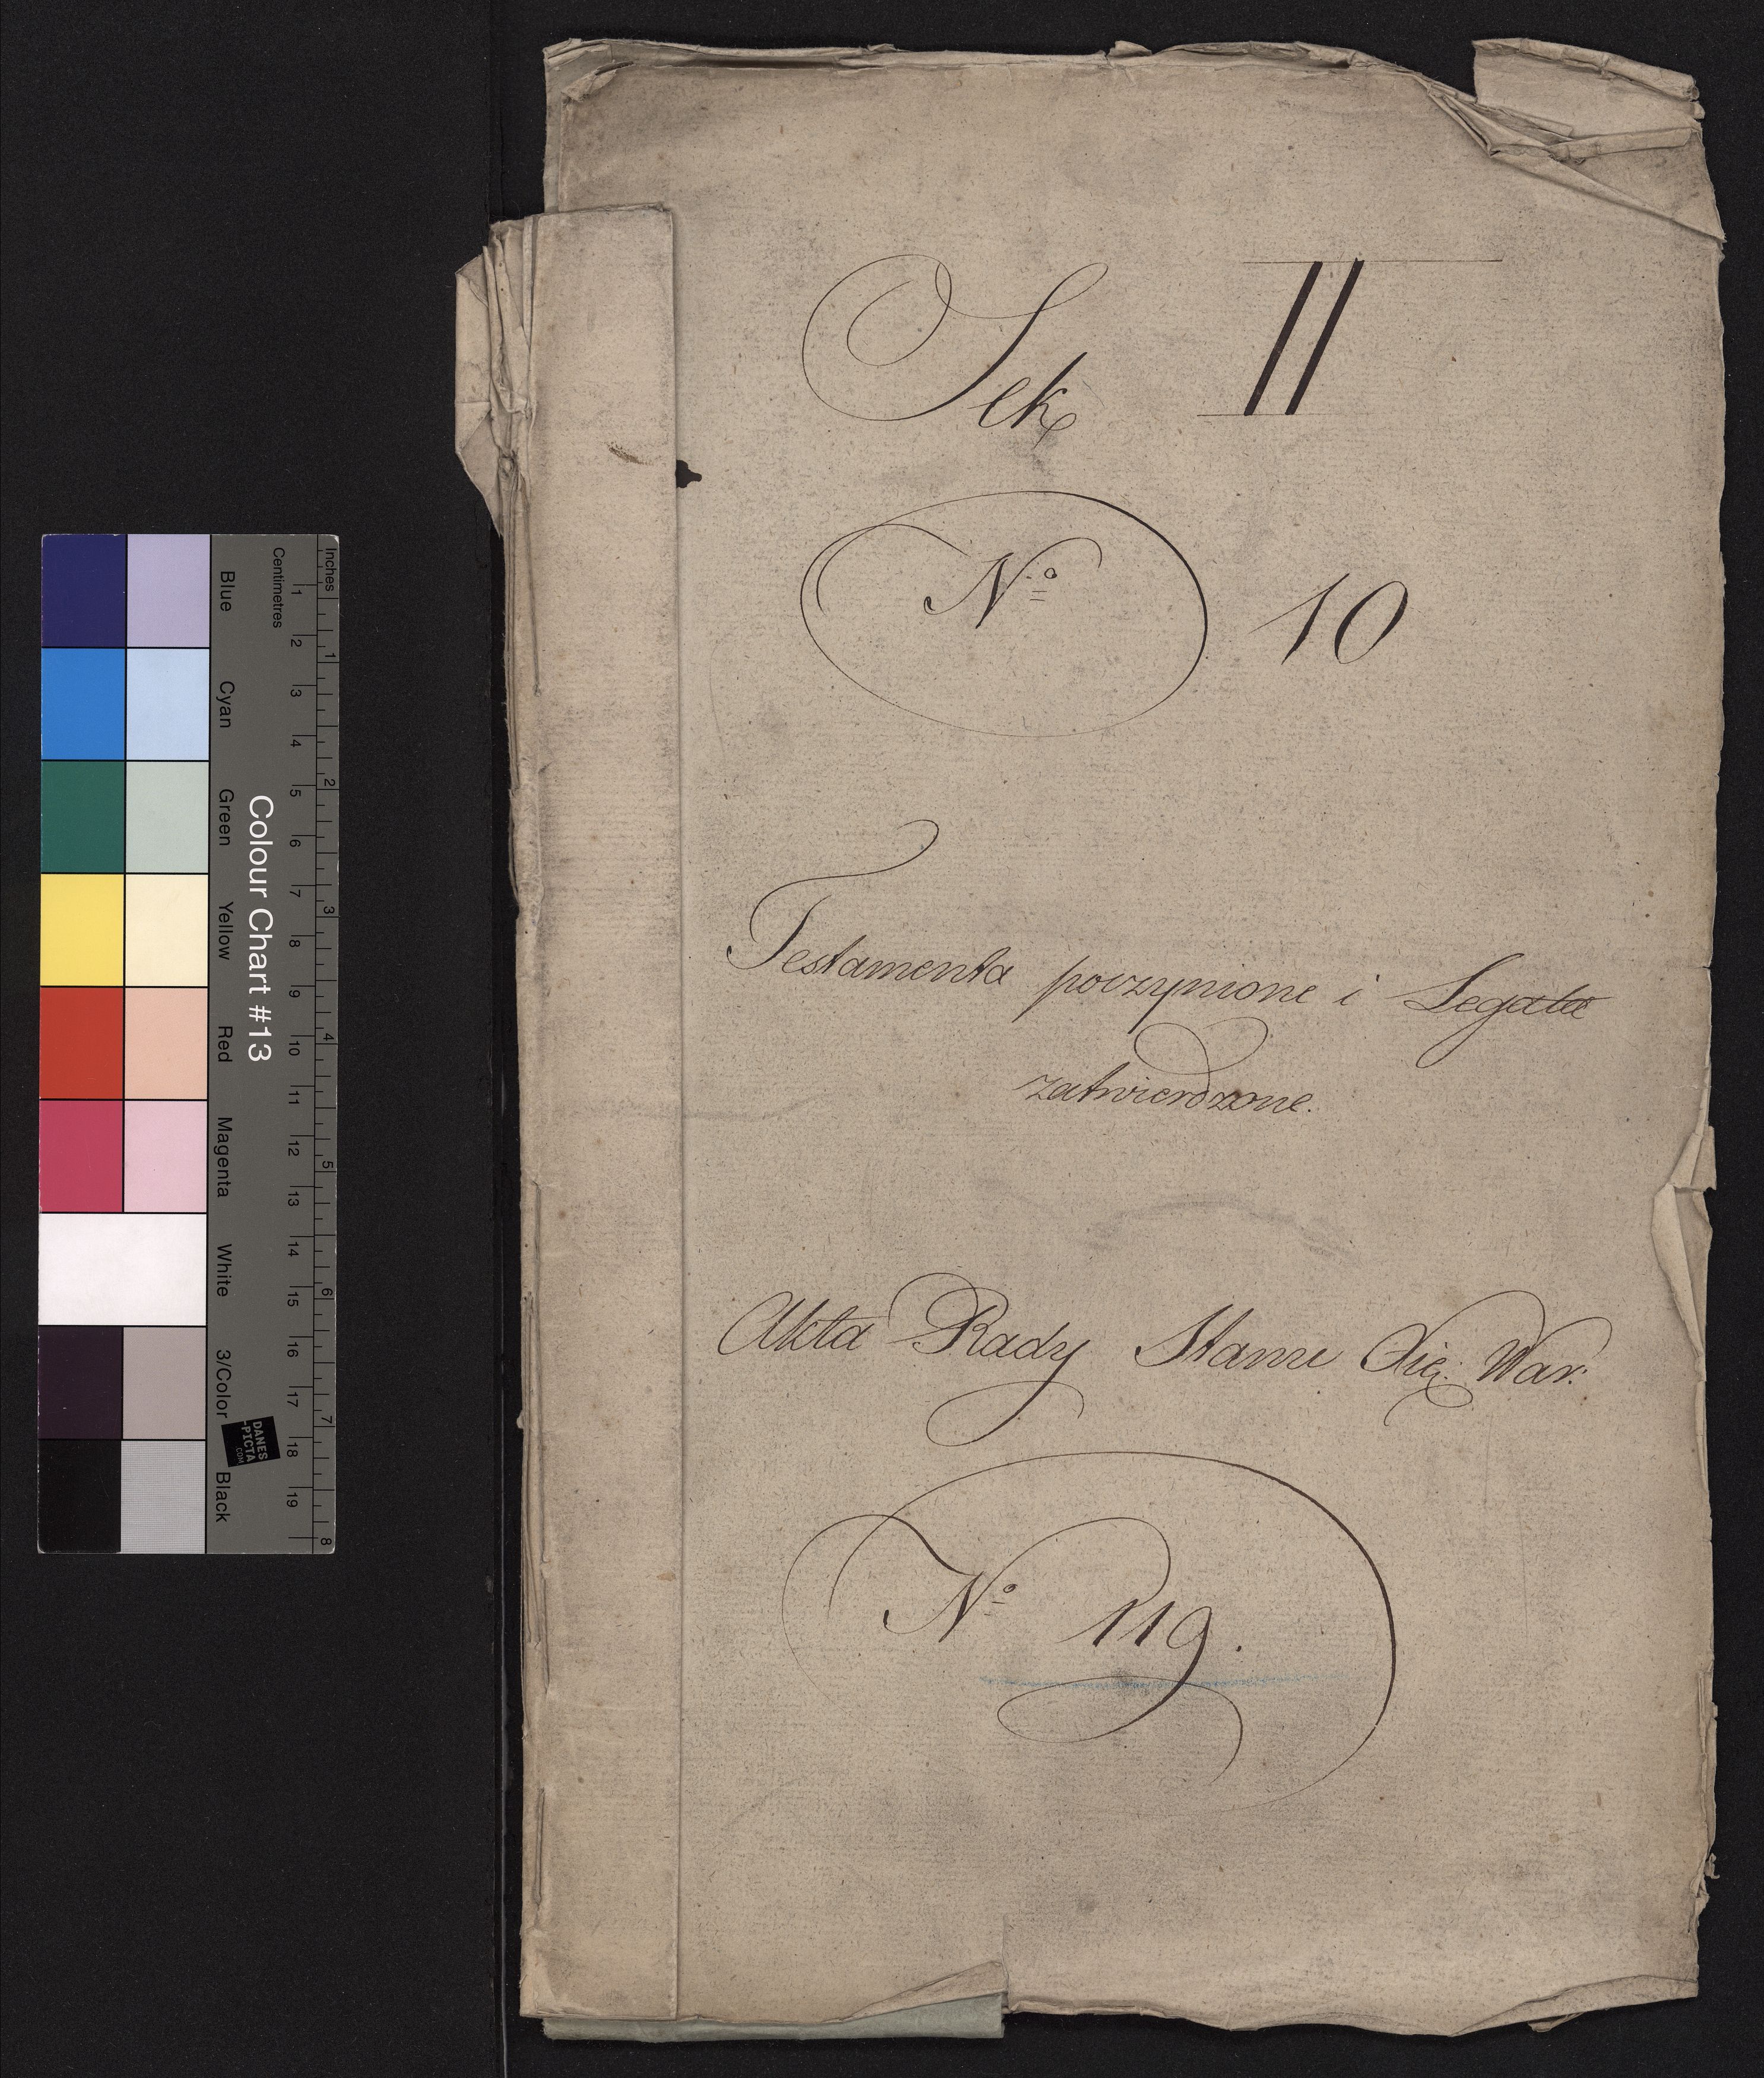 Sek II
Nº 10
Testamenta poczynione i Legata
zatwierdzone.
Akta Rady Stanu Xię: War:
Nº 119.
Inches
Centimetres
1 2 3 4 5 6 7 8 9 10 11 12 13 14 15 16 17 18 19
1 2 3 4 5 6 7 8
Colour Chart #13
Blue Cyan Green Yellow Red Magenta White 3/Color Black
DANES
-PICTA
.COM